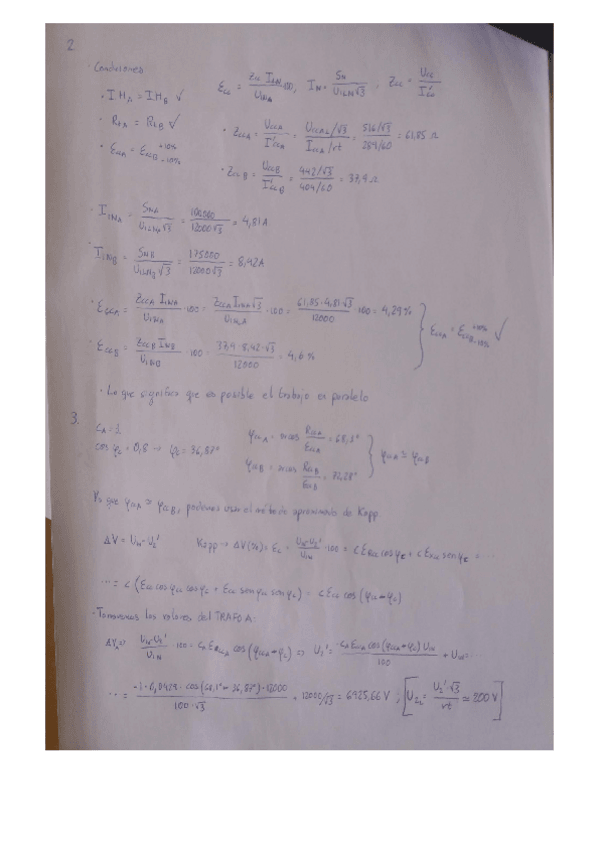 2.
· Condiciones
ε_cc = Z_cc I_1N / U_1N · 100, I_N = S_N / U_1LN √3, Z_cc = U_cc / I'_cc
· IH_A = IH_B ✓
· Rt_A = Rt_B ✓
· ε_ccA = ε_ccB +10% -10%
· Z_ccA = U_ccA / I'_ccA = U_ccAL/√3 / I_ccA/rt = 516/√3 / 289/60 = 61,85 Ω
· Z_ccB = U_ccB / I'_ccB = 442/√3 / 404/60 = 37,9 Ω
· I_1NA = S_NA / U_1LNA √3 = 100000 / 12000√3 = 4,81 A
· I_1NB = S_NB / U_1LNB √3 = 175000 / 12000√3 = 8,42 A
· ε_ccA = Z_ccA I_1NA / U_1NA · 100 = Z_ccA I_1NA √3 / U_1NLA · 100 = 61,85 · 4,81 · √3 / 12000 · 100 = 4,29 %
· ε_ccB = Z_ccB I_1NB / U_1NB · 100 = 37,9 · 8,42 · √3 / 12000 = 4,6 %
ε_ccA = ε_ccB +10% -10% ✓
· Lo que significa que es posible el trabajo en paralelo
3.
c_A = 1
cos φ_2 = 0,8 → φ_2 = 36,87°
φ_ccA = arcos R_ccA / ε_ccA = 68,1°
φ_ccB = arcos R_ccB / ε_ccB = 72,28°
φ_ccA ≈ φ_ccB
Ya que φ_ccA ≈ φ_ccB, podemos usar el método aproximado de Kapp
ΔV = U_1N - U_2' Kapp → ΔV(%) = ε_c = U_1N - U_2' / U_1N · 100 = c ε_Rcc cos φ_2 + c ε_Xcc sen φ_2 = ...
... = c (ε_cc cos φ_cc cos φ_2 + ε_cc sen φ_cc sen φ_2) = c ε_cc cos (φ_cc - φ_2)
· Tomamos los valores del TRAFO A:
U_1N - U_2' / U_1N · 100 = c_A ε_ccA cos (φ_ccA - φ_2) ⇒ U_2' = - c_A ε_ccA cos (φ_ccA - φ_2) U_1N / 100 + U_1N = ...
... = -1 · 0,0429 · cos (68,1° - 36,87°) · 12000 / 100 · √3 + 12000/√3 = 6925,66 V ; [U_2L = U_2' · √3 / rt ≃ 200 V]